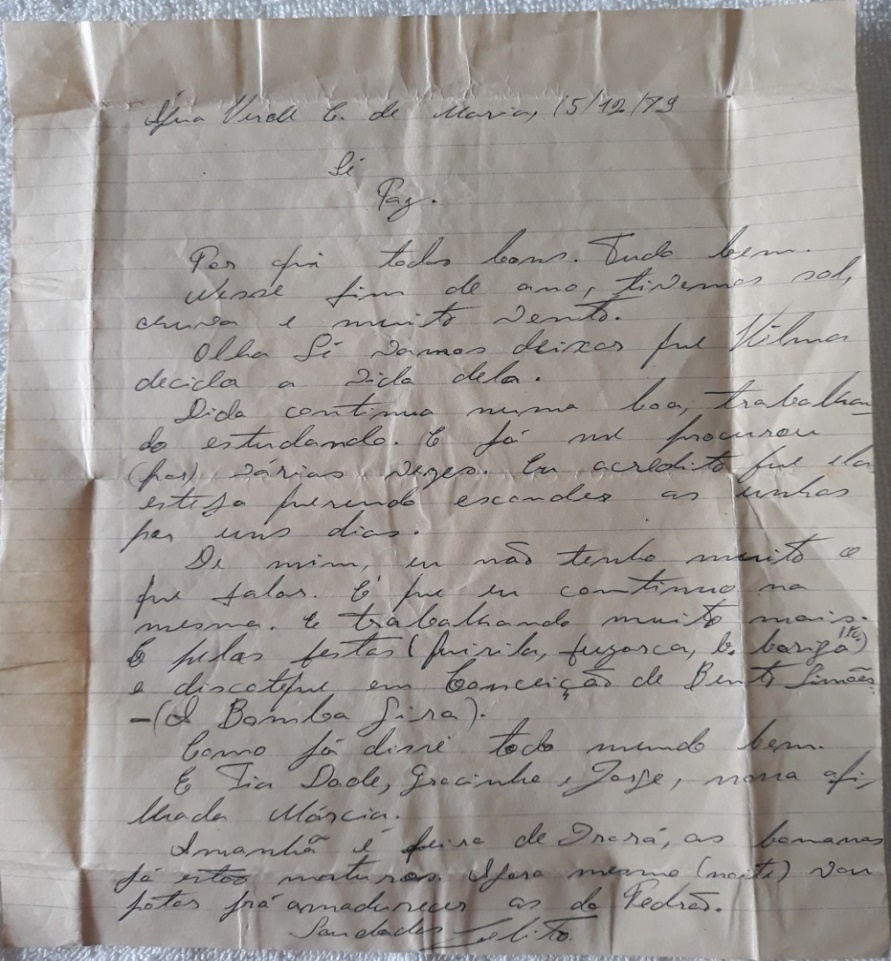 Água Verde C. de Maria, 15/12/79
Sí
Paz.
Por qui todos bons. Tudo bem.
Nesse fim de ano, tivemos sol,
chuva e muito vento.
Olha Sí vamos deixar que Vilma
decida a vida dela.
Dida continua numa boa, trabalhan
do estudando. E já me procurou
(por) várias vezes. Eu acredito que ela
esteja querendo esconder as unhas
por uns dias.
De mim, eu não tenho muito o
que falar. É que eu continuo na
mesma. E trabalhando muito mais.
E pelas festas (fuzarca,
e discoteque, em Conceição de Bento Simões
- (A Bomba Gira).
Como já disse todo mundo bem.
E Tia Dade, Gracinha e Jorge, nossa afi,
lhada Márcia.
Amanhã é feira de Irará, as bananas
já estão maturas. Agora mesmo (noite) vou
botar prá amadurecer as do Pedrão.
Saudades Zelito.